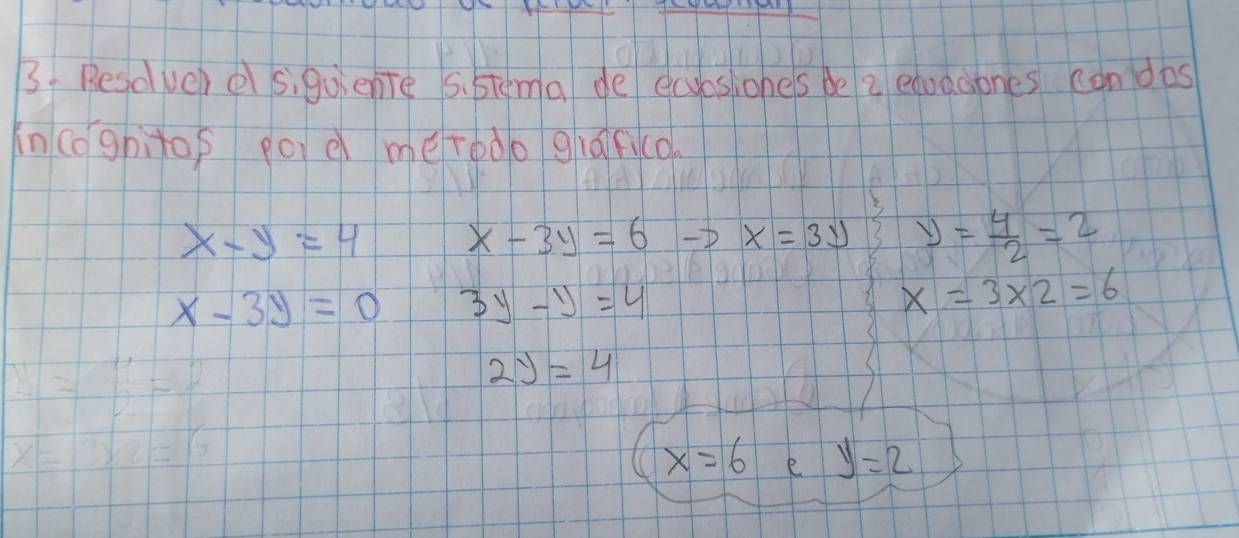 3. Resolver el siguiente sistema de ecuasiones de 2 ecuaciones con dos
incógnitas por el metodo gráfico.
x - y = 4
x - 3y = 0
x - 3y = 6 → x = 3y
3y - y = 4
2y = 4
y = 4/2 = 2
x = 3x2 = 6
x = 6 e y = 2